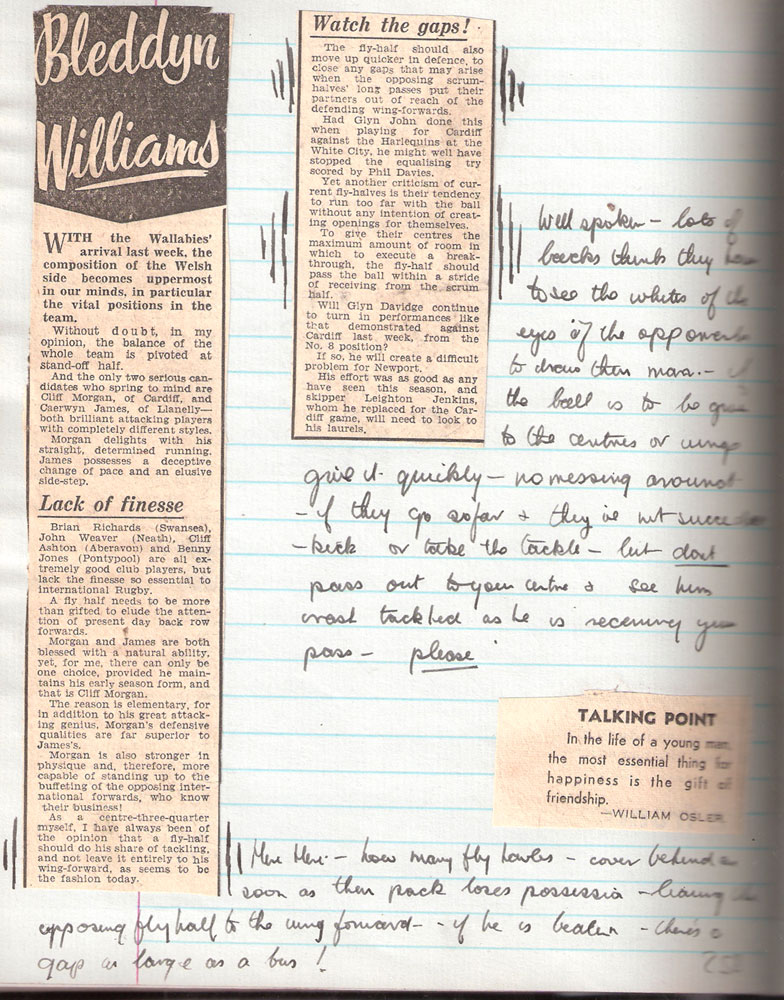 Bleddyn
Williams
WITH the Wallabies'
arrival last week, the
composition of the Welsh
side becomes uppermost
in our minds, in particular
the vital positions in the
team.
Without doubt, in my
opinion, the balance of the
whole team is pivoted at
stand-off half.
And the only two serious can-
didates who spring to mind are
Cliff Morgan, of Cardiff, and
Caerwyn James, of Llanelly—
both brilliant attacking players
with completely different styles.
Morgan delights with his
straight, determined running.
James possesses a deceptive
change of pace and an elusive
side-step.
Lack of finesse
Brian Richards (Swansea),
John Weaver (Neath), Cliff
Ashton (Aberavon) and Benny
Jones (Pontypool) are all ex-
tremely good club players, but
lack the finesse so essential to
international Rugby.
A fly half needs to be more
than gifted to elude the atten-
tion of present day back row
forwards.
Morgan and James are both
blessed with a natural ability,
yet, for me, there can only be
one choice, provided he main-
tains his early season form, and
that is Cliff Morgan.
The reason is elementary, for
in addition to his great attack-
ing genius, Morgan's defensive
qualities are far superior to
James's.
Morgan is also stronger in
physique and, therefore, more
capable of standing up to the
buffeting of the opposing inter-
national forwards, who know
their business!
As a centre-three-quarter
myself, I have always been of
the opinion that a fly-half
should do his share of tackling,
and not leave it entirely to his
wing-forward, as seems to be
the fashion today.
Watch the gaps!
The fly-half should also
move up quicker in defence, to
close any gaps that may arise
when the opposing scrum-
halves' long passes put their
partners out of reach of the
defending wing-forwards.
Had Glyn John done this
when playing for Cardiff
against the Harlequins at the
White City, he might well have
stopped the equalising try
scored by Phil Davies.
Yet another criticism of cur-
rent fly-halves is their tendency
to run too far with the ball
without any intention of creat-
ing openings for themselves.
To give their centres the
maximum amount of room in
which to execute a break-
through, the fly-half should
pass the ball within a stride
of receiving from the scrum
half.
Will Glyn Davidge continue
to turn in performances like
that demonstrated against
Cardiff last week, from the
No. 8 position?
If so, he will create a difficult
problem for Newport.
His effort was as good as any
have seen this season, and
skipper Leighton Jenkins,
whom he replaced for the Car-
diff game, will need to look to
his laurels.
Well spoken - lots of
backs think they have
to see the whites of the
eyes of the opponents
to draw their man. -
the ball is to be
to the centres or wings
give it quickly - no messing around
- if they go so far & they've not
- kick or take the tackle - but dont
pass out to your centre & see him
crash tackled as he is receiving your
pass - please
TALKING POINT
In the life of a young man,
the most essential thing for
happiness is the gift of
friendship.
—WILLIAM OSLER
Here Here - how many fly halves - cover behind
soon as their pack loses possession - leaving
opposing fly half to the wing forward - - if he is beaten - there's a
gap as large as a bus!